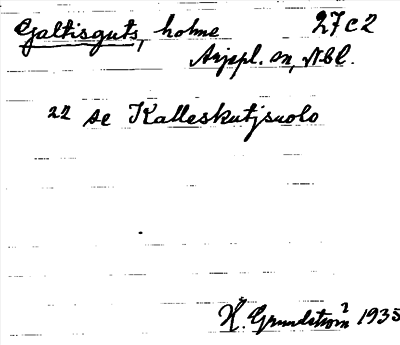 Galtisguts, holme 27 c 2
Arjepl. sn, Nbl.
22 se Kalleskutjsuolo
H. Grundström 1935